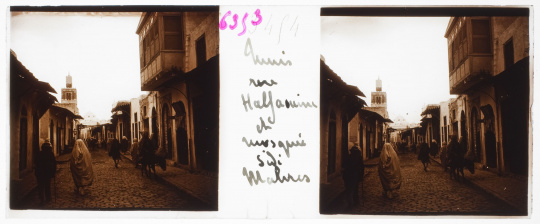 6353
Tunis
rue
Halfaouine
et
mosquée
Sidi
Mahrès